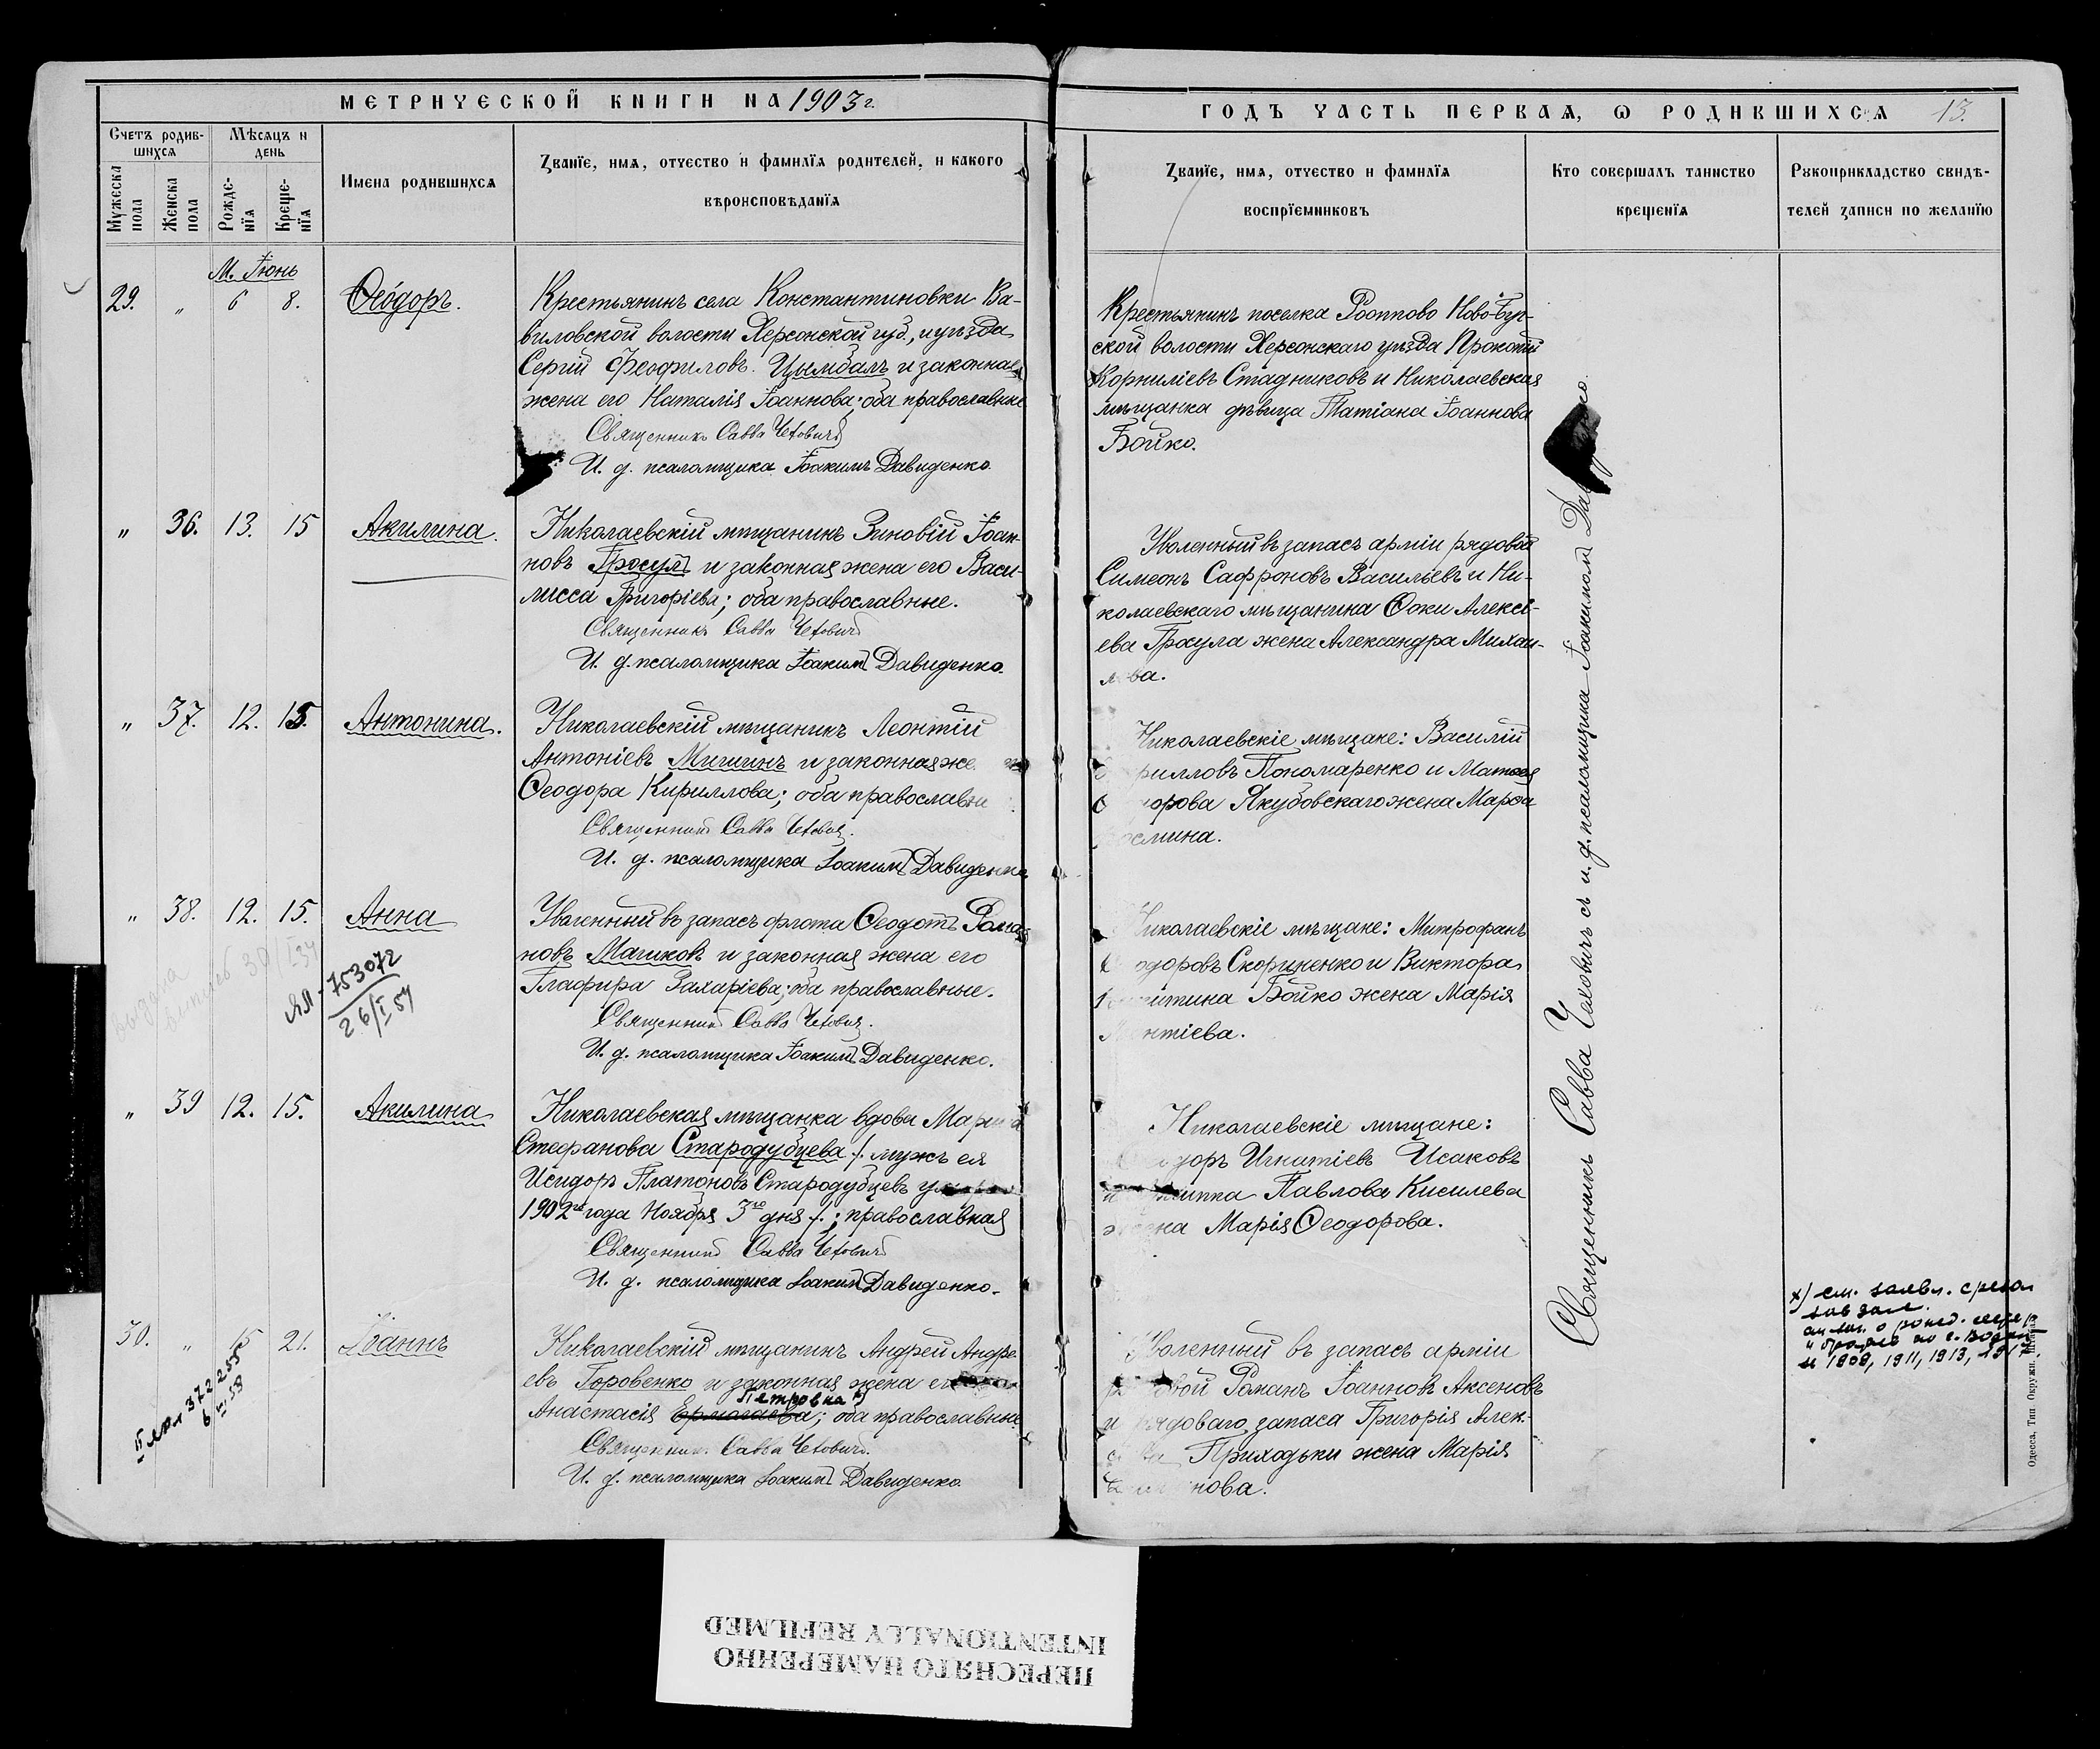 МЕТРИЧЕСКОЙ КНИГИ НА 1903 г.
Счетъ родив-
шихся
Мѣсяцъ и
день
Мужеска
пола
Женска
пола
Рожде-
нія
Креще-
нія
Имена родившихся
Званіе, имя, отчество и фамилія родителей, и какого
вѣроисповѣданія
М. Іюнь
29. " 6 8. Ѳеодоръ.
Крестьянинъ села Константиновки Ва-
виловской волости Херсонской губ., и уѣзда
Сергій Ѳеофиловъ Цымбалъ и законная
жена его Наталія Іоаннова; оба православные
Священникъ Савва Чехович
И. д. псаломщика Іоакимъ Давиденко
" 36. 13. 15 Акилина.
Николаевскій мѣщанинъ Зиновій Іоан-
новъ Гросул и законная жена его Васи-
лисса Григоріева; оба православные.
Священникъ Савва Чехович
И. д. псаломщика Іоаким Давиденко.
" 37. 12. 15. Антонина.
Николаевскій мѣщанинъ Леонтій
Антоніевъ Мишинъ и законная же
Ѳеодора Кириллова; оба православны
Священник Савва Чехович.
И. д. псаломщика Іоаким Давиденко
" 38. 12. 15. Анна
Уволенный въ запасъ флота Ѳеодотъ Рома
новъ Машковъ и законная жена его
Глафира Захаріева; оба православные.
Священник Савва Чехович.
И. д. псаломщика Іоаким Давиденко.
выдана
выпись 30/I 34
ЯЛ-753072
26/I 54
" 39 12. 15. Акилина
Николаевская мѣщанка вдова Мар
Стефанова Стародубцева /. мужъ ея
Исидоръ Платоновъ Стародубцевъ умеръ
1902го года Ноября 3го дня /.; православная
Священник Савва Чехович
И. д. псаломщика Іоаким Давиденко.
30. " 15 21. Іоаннъ
Николаевскій мѣщанинъ Андрей Андре
евъ Боровенко и законная жена его
Петровна х)
Анастасія Ермолаева; оба православные
Священник Савва Чехович.
И. д. псаломщика Іоаким Давиденко.
372255
ГОДЪ ЧАСТЬ ПЕРВАЯ, Ѡ РОДИВШИХСЯ 13.
Званіе, имя, отчество и фамилія
воспріемниковъ
Кто совершалъ таинство
крещенія
Рукоприкладство свидѣ-
телей записи по желанію
Крестьянинъ поселка Роппово Ново-Буг-
ской волости Херсонскаго уѣзда Прокопій
Корниліевъ Стадниковъ и Николаевская
мѣщанка дѣвица Татіана Іоаннова
Бойко.
Уволенный въ запасъ арміи рядовой
Симеонъ Сафроновъ Васильевъ и Ни-
колаевскаго мѣщанина Ѳоки Алексѣ-
ева Гросула жена Александра Михаи-
лова.
Николаевскіе мѣщане: Василій
рилловъ Пономаренко и Матѳея
орова Якубовскаго жена Марѳа
смина.
Николаевскіе мѣщане: Митрофанъ
одоровъ Скориненко и Виктора
итина Бойко жена Марія
нтіева.
Николаевскіе мѣщане:
доръ Игнатіевъ Исаковъ
иппа Павлова Кисилева
жена Марія Ѳеодорова.
Уволенный въ запасъ арміи
рядовой Романъ Іоанновъ Аксеновъ
и рядоваго запаса Григорія Алек-
Приходьки жена Марія
нова.
Священникъ Савва Чеховичъ съ и. д. псаломщика Іоакимом Дав
х) см. заявл.
и 1909, 1911, 1913, 1917.
Одесса, Тип Окружн. Штаба
ПЕРЕСНЯТО НАМЕРЕННО
INTENTIONALLY REFILMED